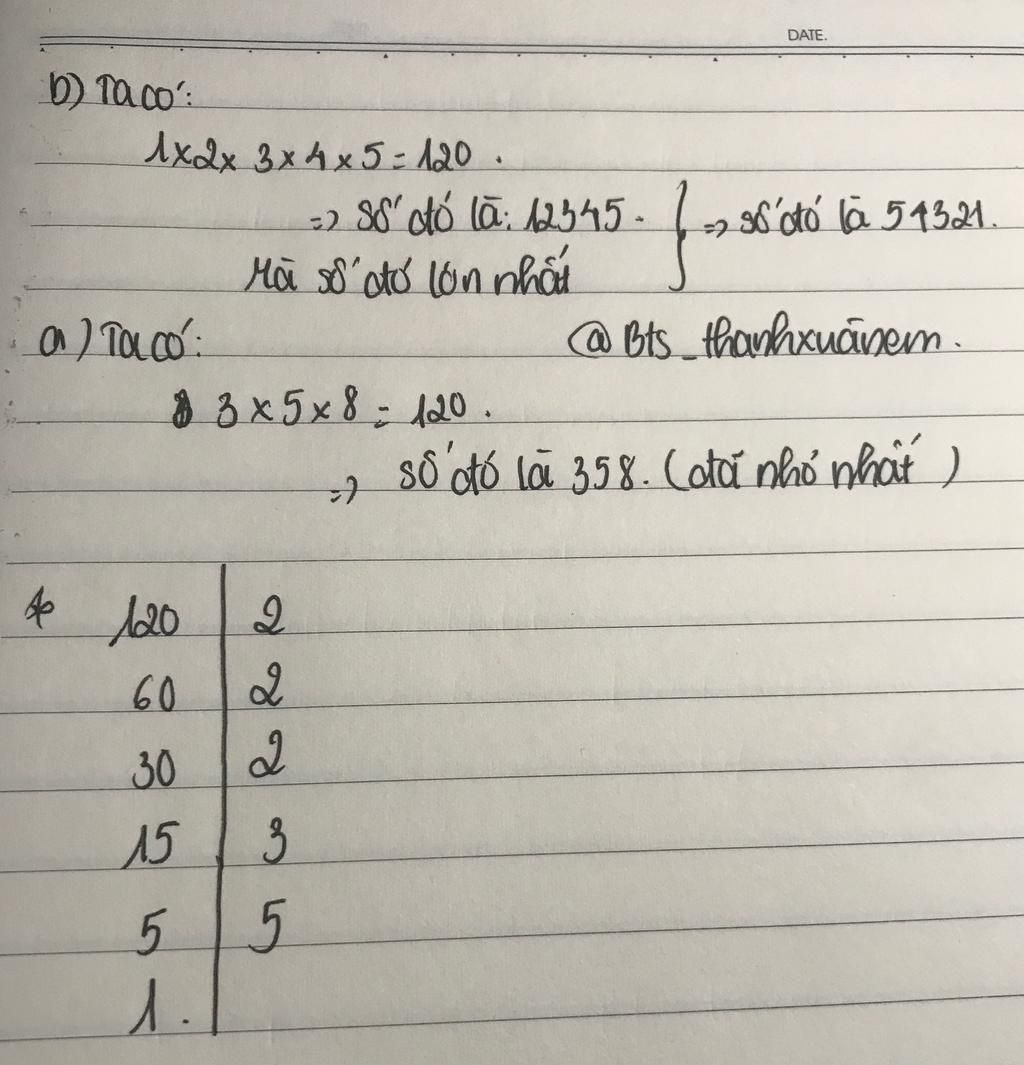 DATE.
b) Ta có:
1 x 2 x 3 x 4 x 5 = 120 .
=> số đó là: 12345. } => số đó là 54321.
Mà số đó lớn nhất
a) Ta có: @Bts_thanhxuânem.
3 x 5 x 8 = 120 .
=> số đó là 358. (đã nhỏ nhất)
* 120 | 2
60 | 2
30 | 2
15 | 3
5 | 5
1 . |